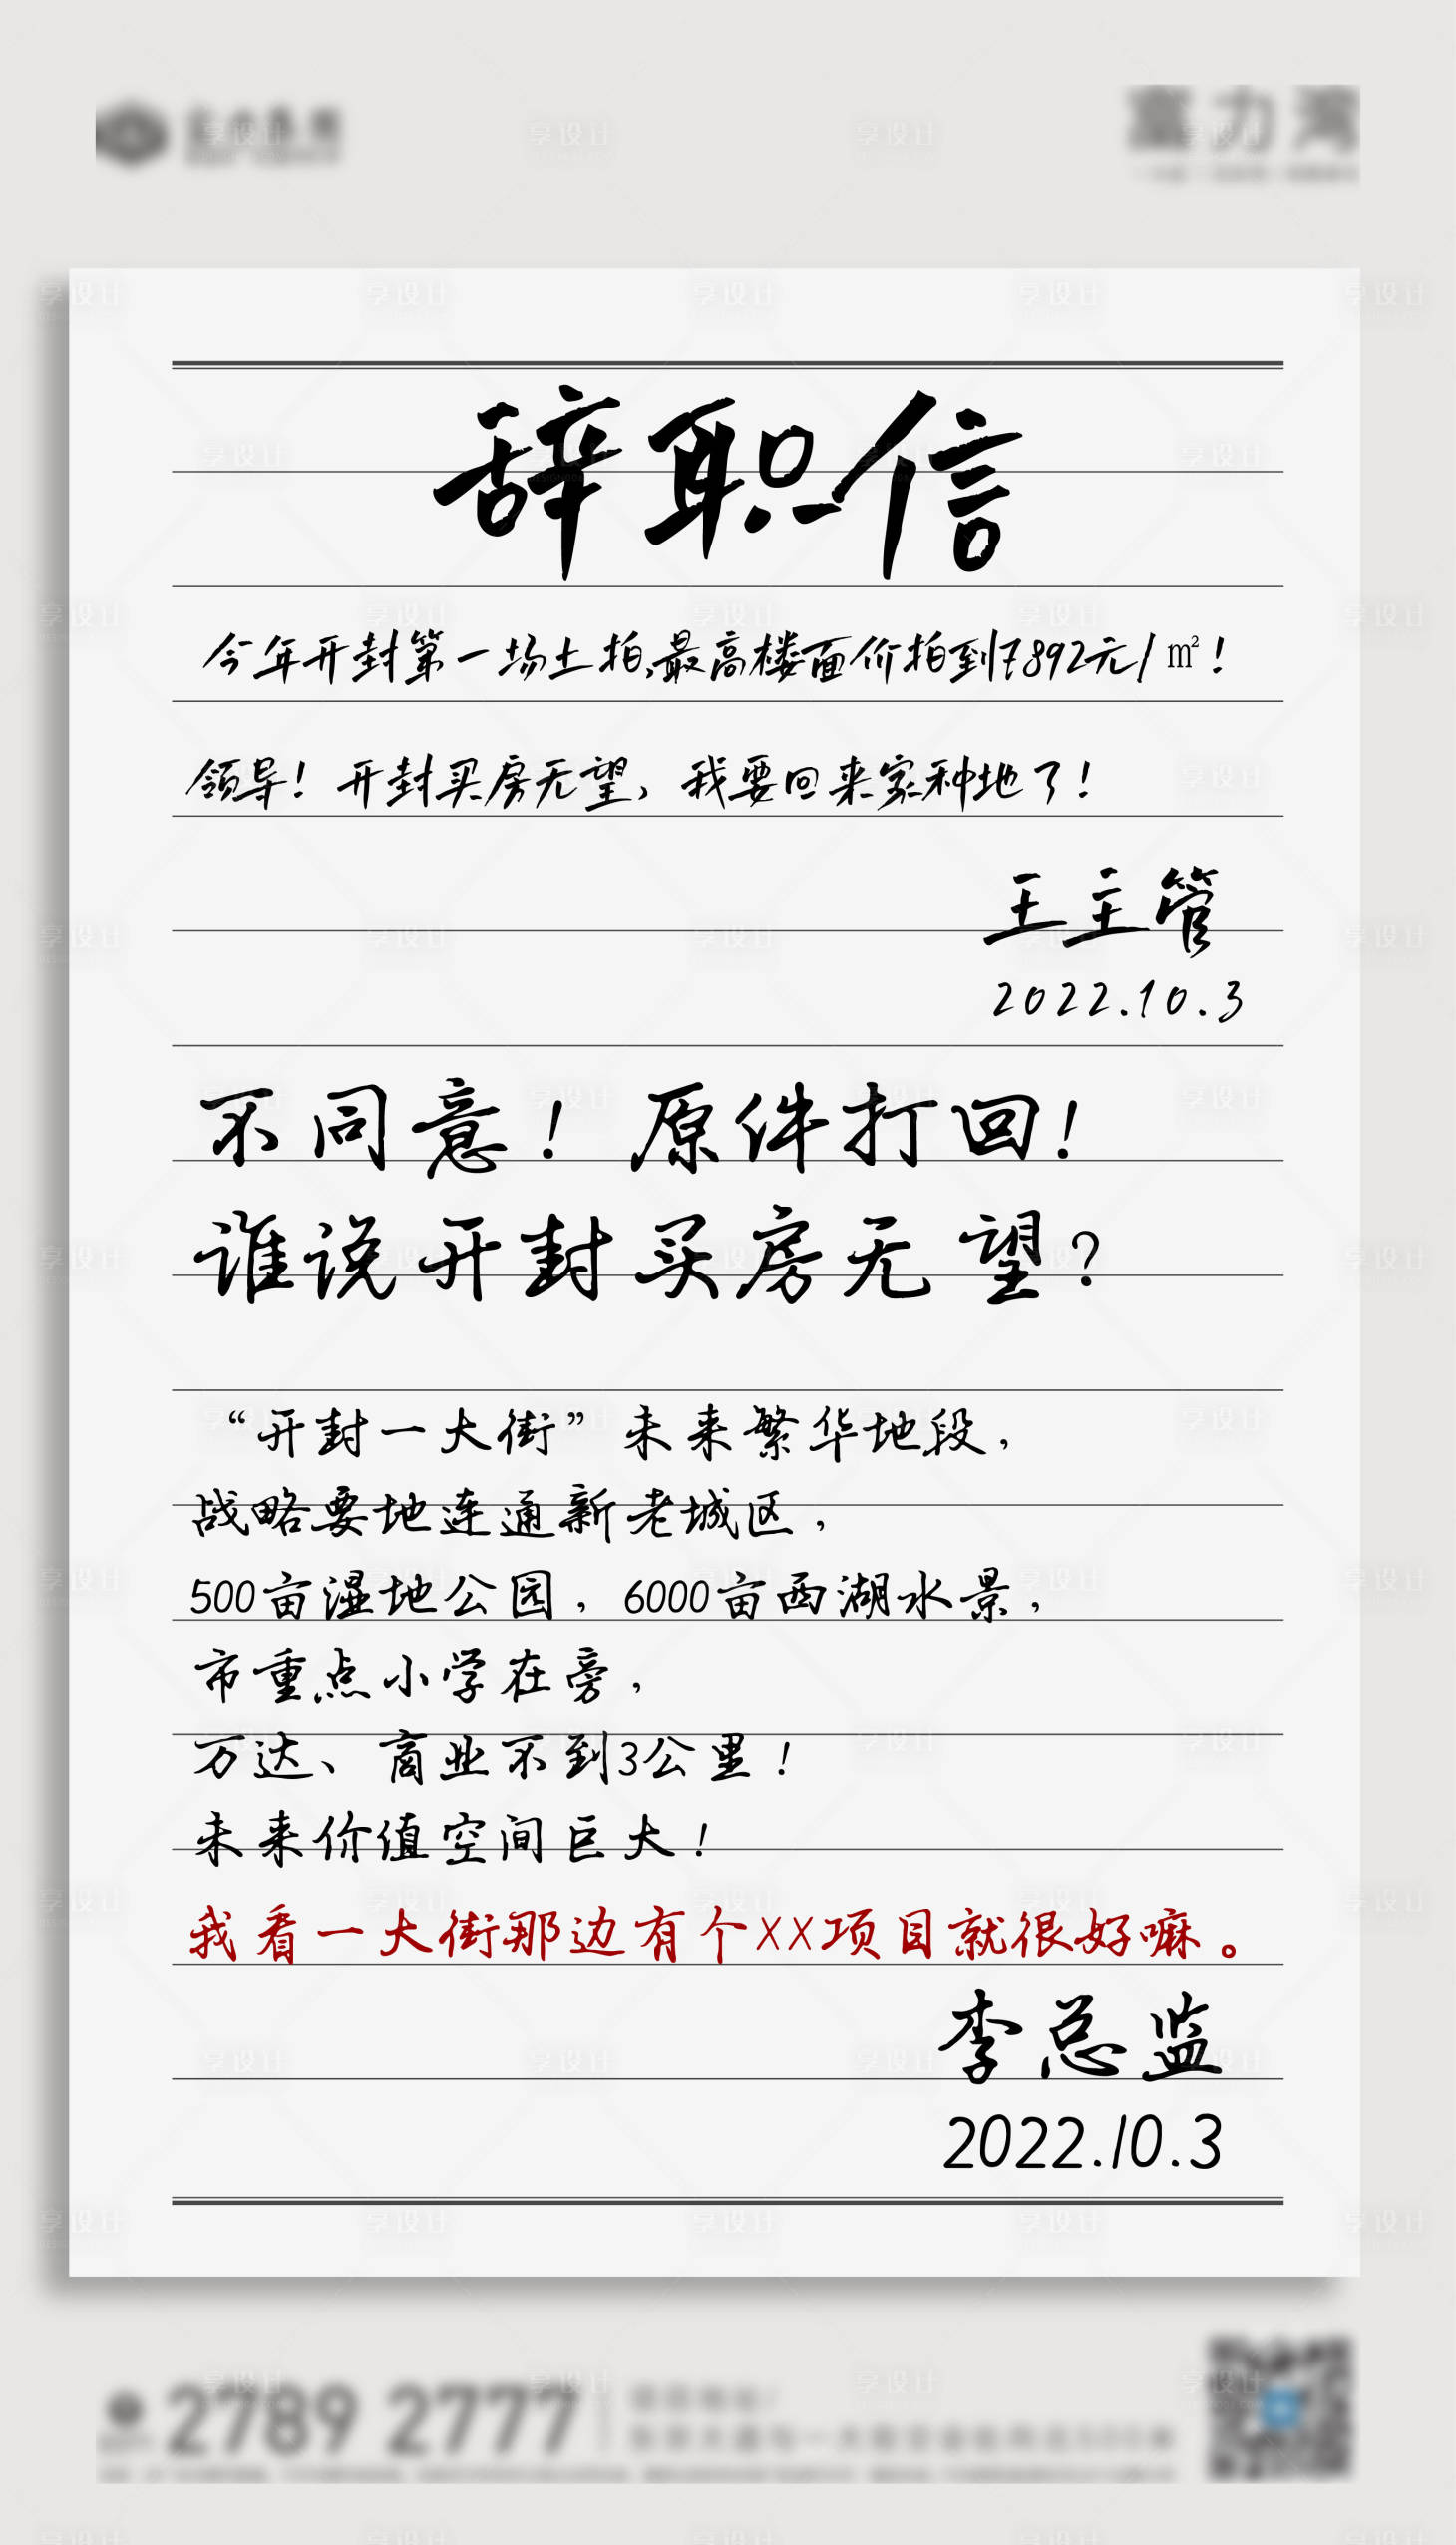 富力湾
辞职信
今年开封第一场土拍,最高楼面价拍到7892元/㎡!
领导!开封买房无望,我要回来家种地了!
王主管
2022.10.3
不同意!原件打回!
谁说开封买房无望?
“开封一大街”未来繁华地段,
战略要地连通新老城区,
500亩湿地公园,6000亩西湖水景,
市重点小学在旁,
万达、商业不到3公里!
未来价值空间巨大!
我看一大街那边有个XX项目就很好嘛。
李总监
2022.10.3
2789 2777
享设计